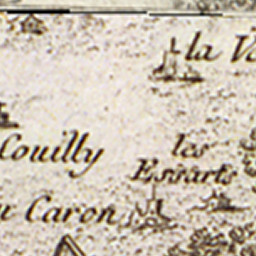 la
Couilly
les
Essarts
Caron